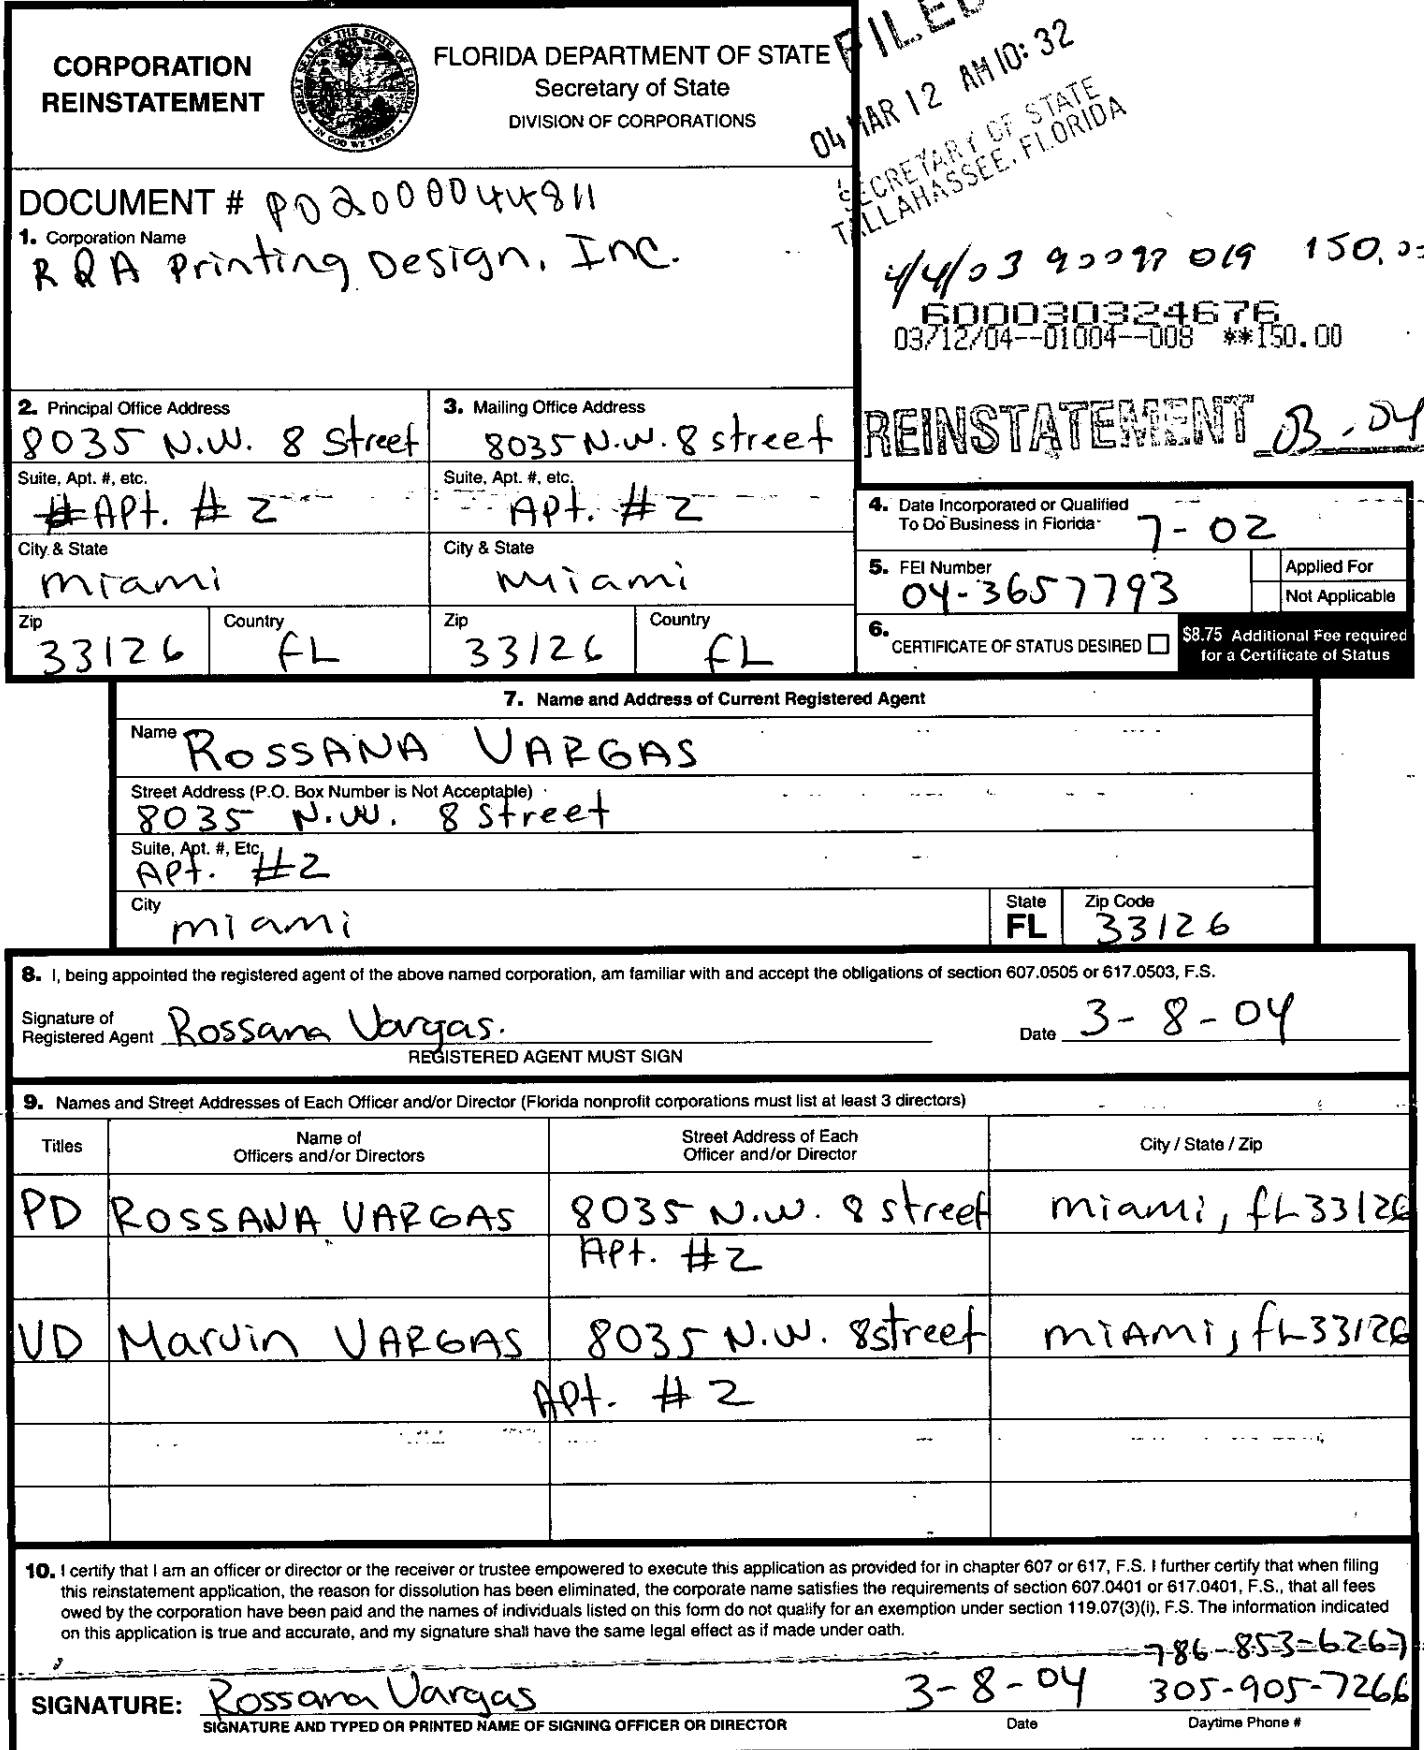 CORPORATION
REINSTATEMENT
GREAT SEAL OF THE STATE OF FLORIDA
IN GOD WE TRUST
FLORIDA DEPARTMENT OF STATE
Secretary of State
DIVISION OF CORPORATIONS
FILED
04 MAR 12 AM 10:32
SECRETARY OF STATE
TALLAHASSEE, FLORIDA
DOCUMENT # P02000044811
1. Corporation Name
R Q A Printing Design, Inc.
4/4/03 90097 019 150.00
600030324676
03/12/04--01004--008 **150.00
REINSTATEMENT 03-04
2. Principal Office Address
8035 N.W. 8 Street
Suite, Apt. #, etc.
# Apt. # 2
City & State
Miami
Zip
33126
Country
FL
3. Mailing Office Address
8035 N.W. 8 street
Suite, Apt. #, etc.
Apt. # 2
City & State
Miami
Zip
33126
Country
FL
4. Date Incorporated or Qualified
To Do Business in Florida
7-02
5. FEI Number
04-3657793
Applied For
Not Applicable
6. CERTIFICATE OF STATUS DESIRED
$8.75 Additional Fee required
for a Certificate of Status
7. Name and Address of Current Registered Agent
Name ROSSANA VARGAS
Street Address (P.O. Box Number is Not Acceptable)
8035 N.W. 8 street
Suite, Apt. #, Etc.
Apt. #2
City
miami
State
FL
Zip Code
33126
8. I, being appointed the registered agent of the above named corporation, am familiar with and accept the obligations of section 607.0505 or 617.0503, F.S.
Signature of
Registered Agent Rossana Vargas.
Date 3-8-04
REGISTERED AGENT MUST SIGN
9. Names and Street Addresses of Each Officer and/or Director (Florida nonprofit corporations must list at least 3 directors)
Titles
Name of
Officers and/or Directors
Street Address of Each
Officer and/or Director
City / State / Zip
PD ROSSANA VARGAS 8035 N.W. 8 street miami, fL 33126
Apt. #2
VD Marvin VARGAS 8035 N.W. 8street miAmi, fL 33126
Apt. # 2
10. I certify that I am an officer or director or the receiver or trustee empowered to execute this application as provided for in chapter 607 or 617, F.S. I further certify that when filing
this reinstatement application, the reason for dissolution has been eliminated, the corporate name satisfies the requirements of section 607.0401 or 617.0401, F.S., that all fees
owed by the corporation have been paid and the names of individuals listed on this form do not qualify for an exemption under section 119.07(3)(i), F.S. The information indicated
on this application is true and accurate, and my signature shall have the same legal effect as if made under oath.
786-853-6267
SIGNATURE: Rossana Vargas 3-8-04 305-905-7266
SIGNATURE AND TYPED OR PRINTED NAME OF SIGNING OFFICER OR DIRECTOR
Date
Daytime Phone #